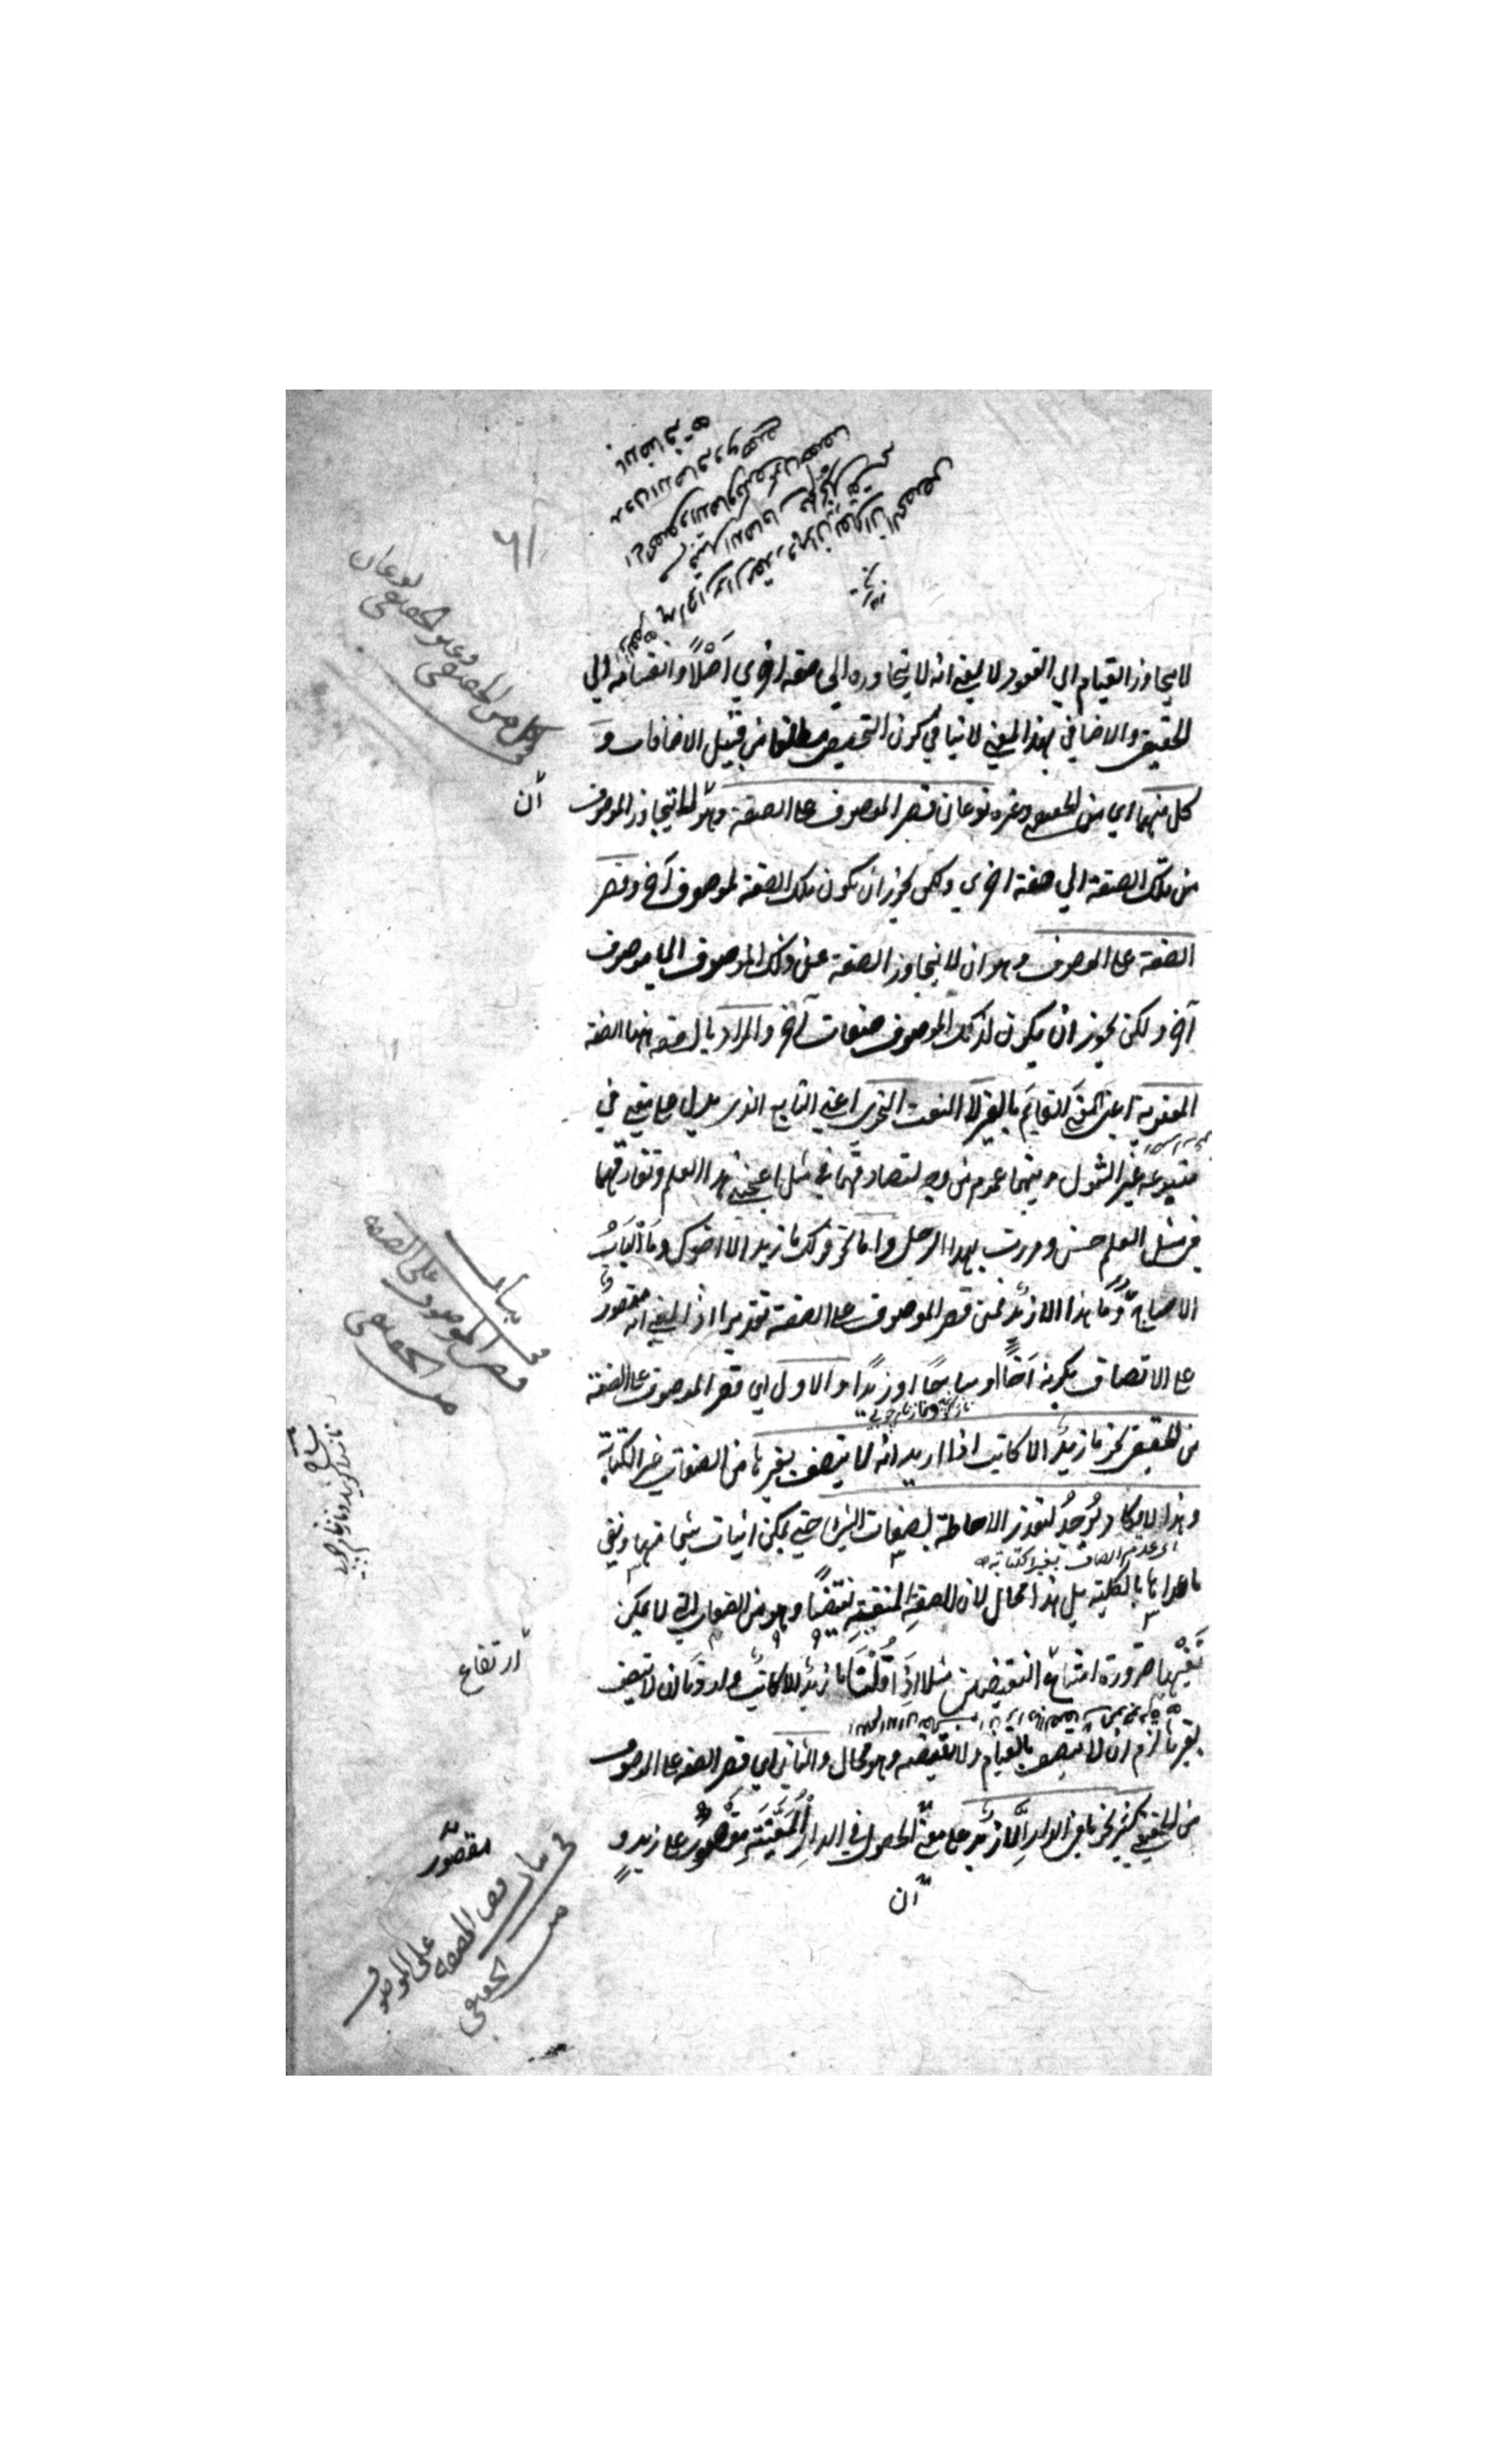 لا يتجاوز القيام الي القعود لا بمعني انه لا يتجاوزه الي صفة اخري اصلًا وانقسامه الي
الحقيقي والاضافي بهذا المعني لا ينافي كون التخصيص مطلقا من قبيل الاضافات و
كل منهما اي من الحقيقي وغيره نوعان قصر الموصوف علي الصفة وهو ان لا يتجاوز الموصوف
من تلك الصفة الي صفة اخري ولكن يجوز ان يكون تلك الصفة لموصوف آخر وقصر
الصفة علي الموصوف وهو ان لا يتجاوز الصفة عن ذلك الموصوف الي موصوف
آخر ولكن يجوز ان يكون لذلك الموصوف صفات آخر والمراد بالصفة ههنا الصفة
المعنوية اعني المعني القائم بالغير لا النعت النحوي اعني التابع الذي يدل علي معني في
متبوعه غير الشمول وبينهما عموم من وجه لتصادقهما في مثل اعجبني هذا العلم وتفارقهما
في مثل العلم حسن ومررت بهذا الرجل واما نحو قولك ما زيد الا اخوك وما الباب
الا ساج وما هذا الا زيد فمن قصر الموصوف علي الصفة تقديرا اذ المعني انه مقصور
علي الاتصاف بكونه اخًا او ساجًا او زيدًا والاول اي قصر الموصوف علي الصفة
من الحقيقي نحو ما زيد الا كاتب اذا اريد انه لا يتصف بغيرها من الصفات غير الكتابة
وهذا لا يكاد يوجد لتعذر الاحاطة بصفات الشئ حتي يمكن اثبات شئ منها ونفي
اي عدم اتصاف بغير الكتابة
ما عداها بالكلية بل هذا محال لان للصفة المنفية نقيضًا وهو من الصفات التي لا يمكن
نفيها ضرورة امتناع النقيضين مثلا اذا قلنا ما زيد الا كاتب واردنا ان لا يتصف
بغيرها لزم ان لا يتصف بالقيام ولا بنقيضه وهو محال والثاني اي قصر الصفة علي الموصوف
من الحقيقي كثير نحو ما في الدار الا زيد علي معني الحصول في الدار المعينة مقصور علي زيد و
ان
ان
ارتفاع
مقصور
وكل من الحقيقي وغير الحقيقي نوعان
بيان قصر الموصوف علي الصفة
من الحقيقي
في بيان قصر الصفة علي الموصوف
من الحقيقي